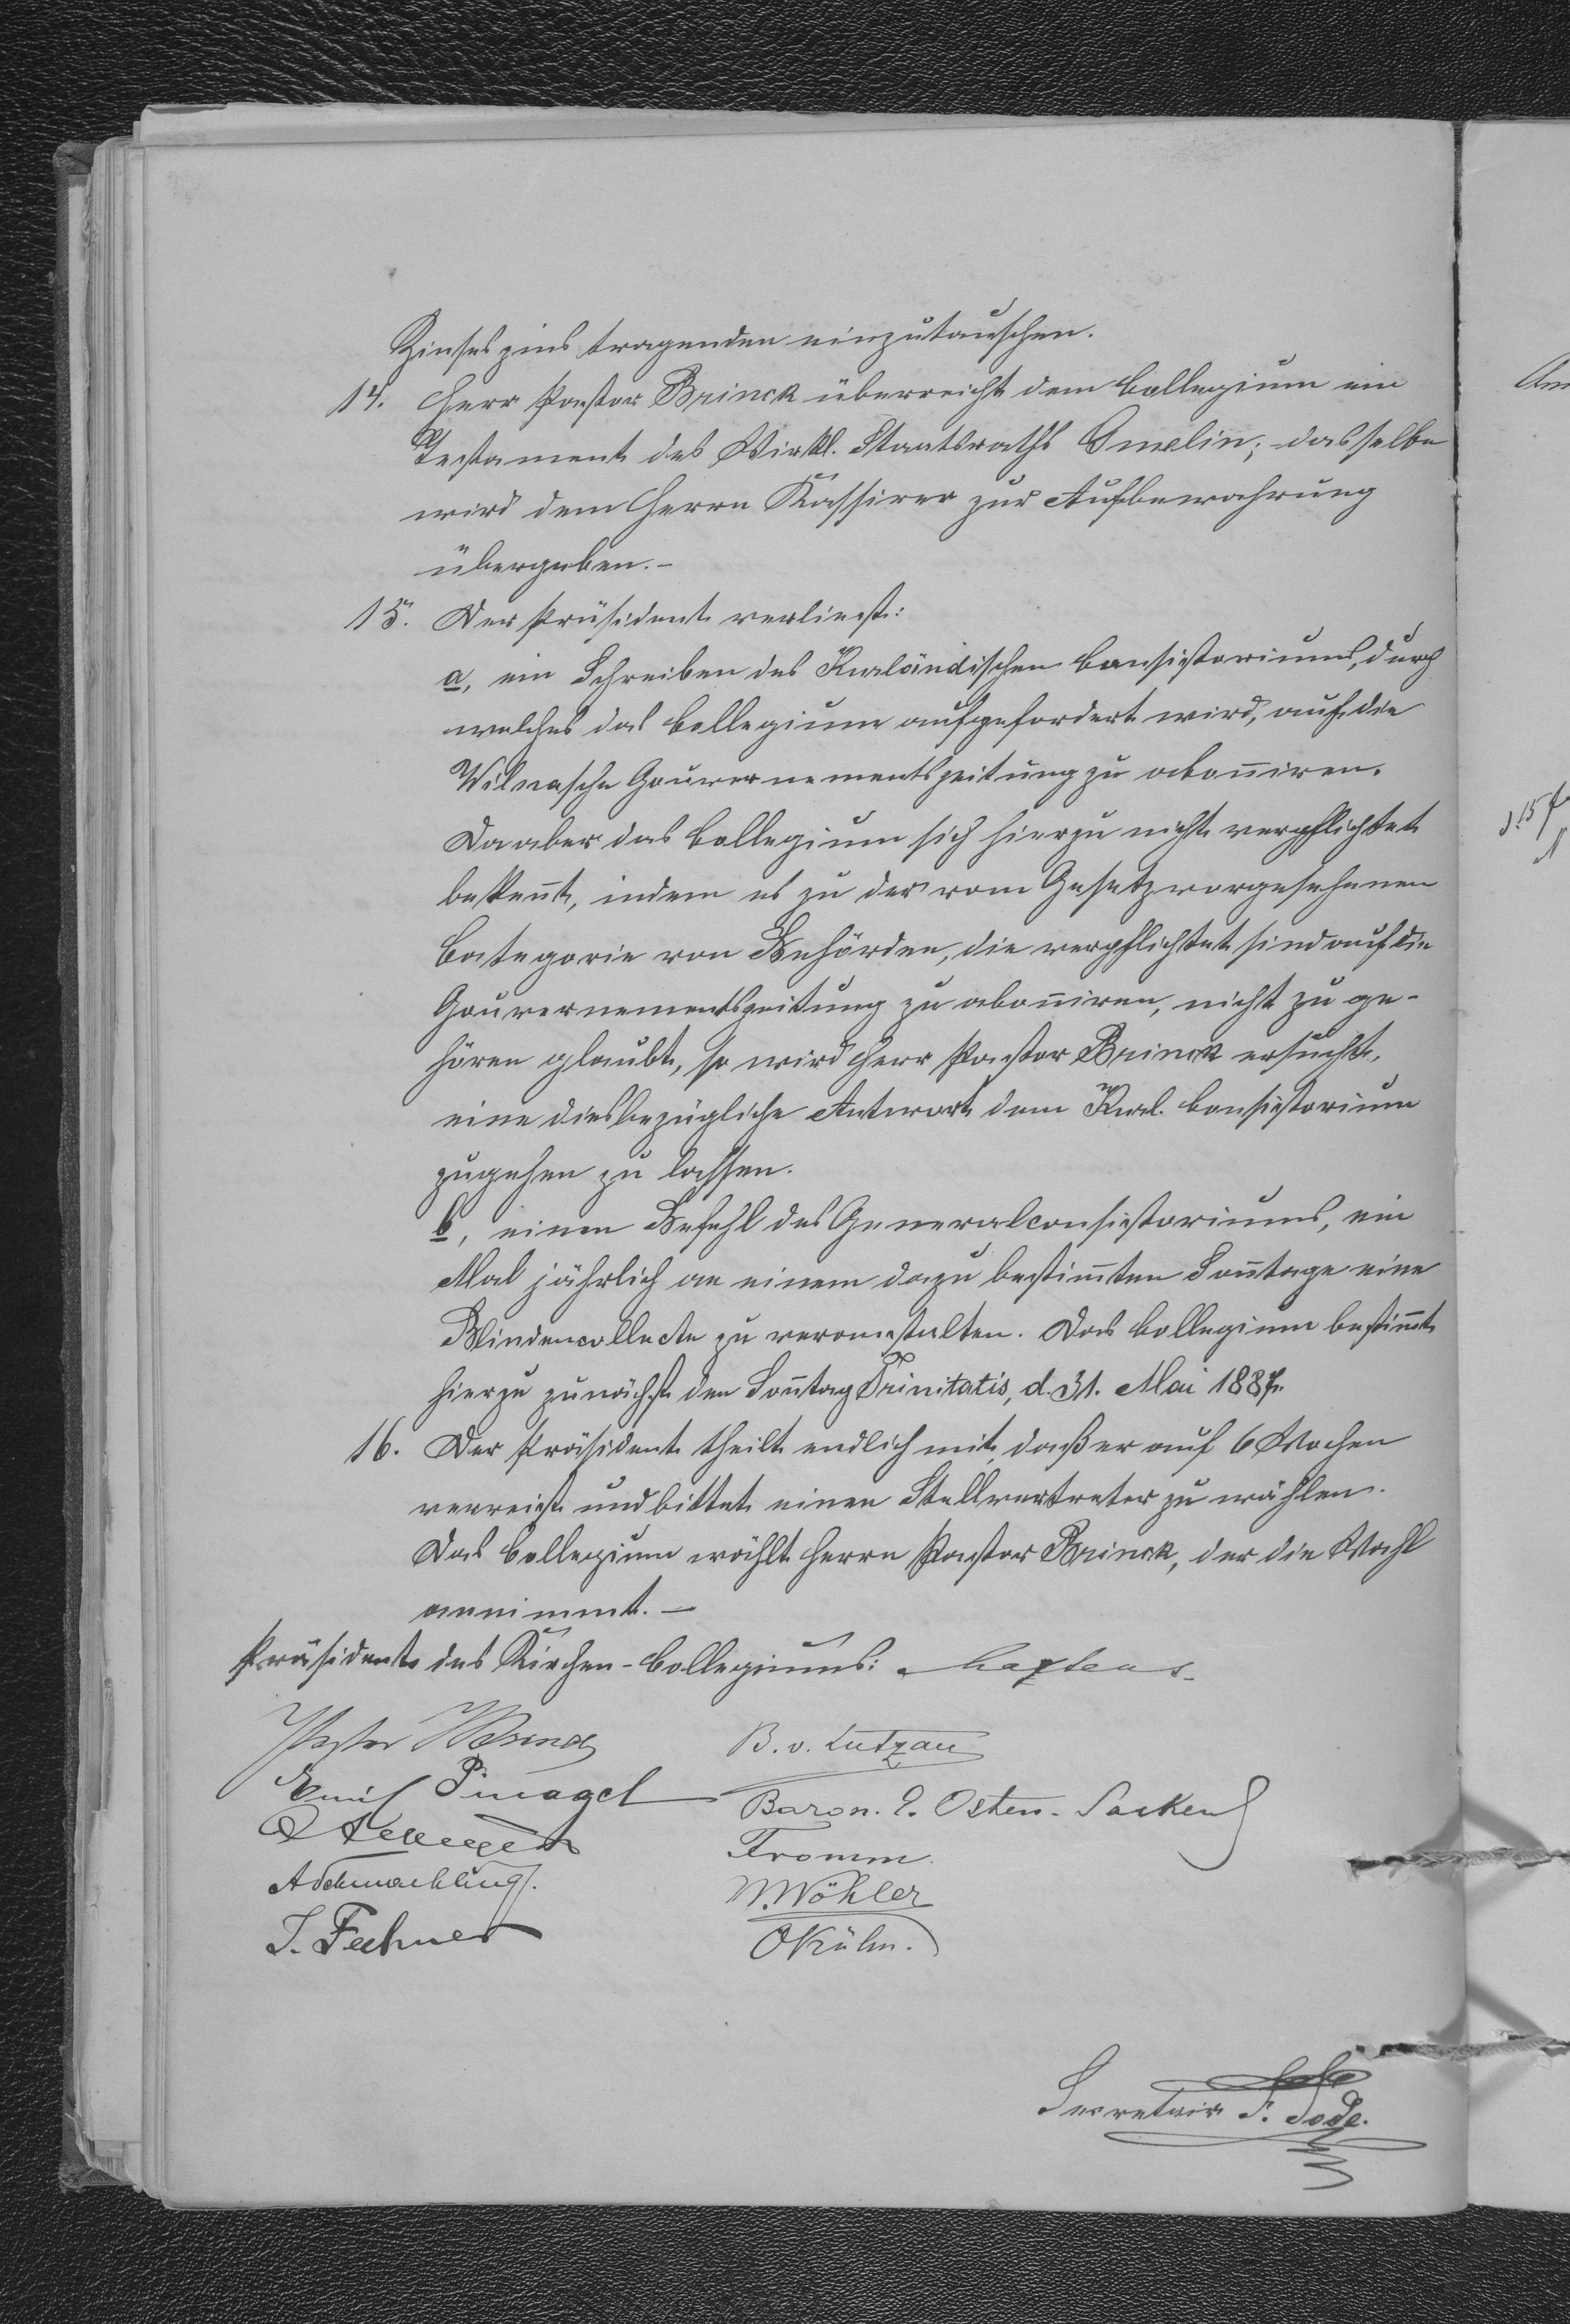 Zinseszins tragenden einzutauschen.
14. Herr Pastor Brinck überreicht dem Collegium ein
Testament des Wirkl. Staatsraths Gmelin; dasselbe
wird dem Herrn Kassirer zur Aufbewahrung
übergeben.–
15. Der Präsident verliest:
a, ein Schreiben des Kurländischen Consistoriums, durch
welches das Collegium aufgefordert wird, auf die
Wilnasche Gouvernementszeitung zu aboñiren.
Da aber das Collegium sich hierzu nicht verpflichtet
bekeñt, indem es zu der vom Gesetz vorgesehenen
Categorie von Behörden, die verpflichtet sind auf die
Gouvernementszeitung zu aboñiren, nicht zu ge-
hören glaubt, so wird Herr Pastor Brinck ersucht,
eine diesbezügliche Antwort dem Kurl. Consistorium
zugehen zu lassen.
b, einen Befehl des Generalconsistoriums, ein
Mal jährlich an einem dazu bestim̃ten Soñtage eine
Blindencollecte zu veranstalten. Das Collegium bestim̃t
hierzu zunächst den Soñtag Trinitatis, d. 31. Mai 1887.
16. Der Präsident theilt endlich mit, daß er auf 6 Wochen
verreist und bittet einen Stellvertreter zu wählen.
Das Collegium wählt Herrn Pastor Brinck, der die Wahl
annimmt.–
Präsident des Kirchen-Collegiums:
Pastor
B. v. Lutzau
Emil
Baron. E. Osten-Sacken
Fromm
A Schmaehling.
W. Wöhler
J. Fechner
O Kühn.
Secretair